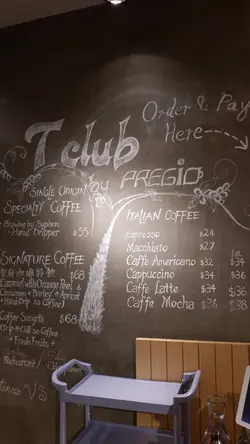 Order & Pay
Here
T.club
by PREGIO
SINGLE ORIGIN
SPECIALTY COFFEE
Brewing by Syphon
Hand Dripper $55
SIGNATURE COFFEE
$68
Caramel with Orange Peel &
Cinnamon + Barley + Apricot
+ Hand-Drip so Coffee
Coffee $68
+ Fresh Fruits +
ITALIAN COFFEE
Espresso $24
Macchiato $27
Caffe Americano $32 $34
Cappuccino $34 $36
Caffe Latte $34 $36
Caffe Mocha $36 $38